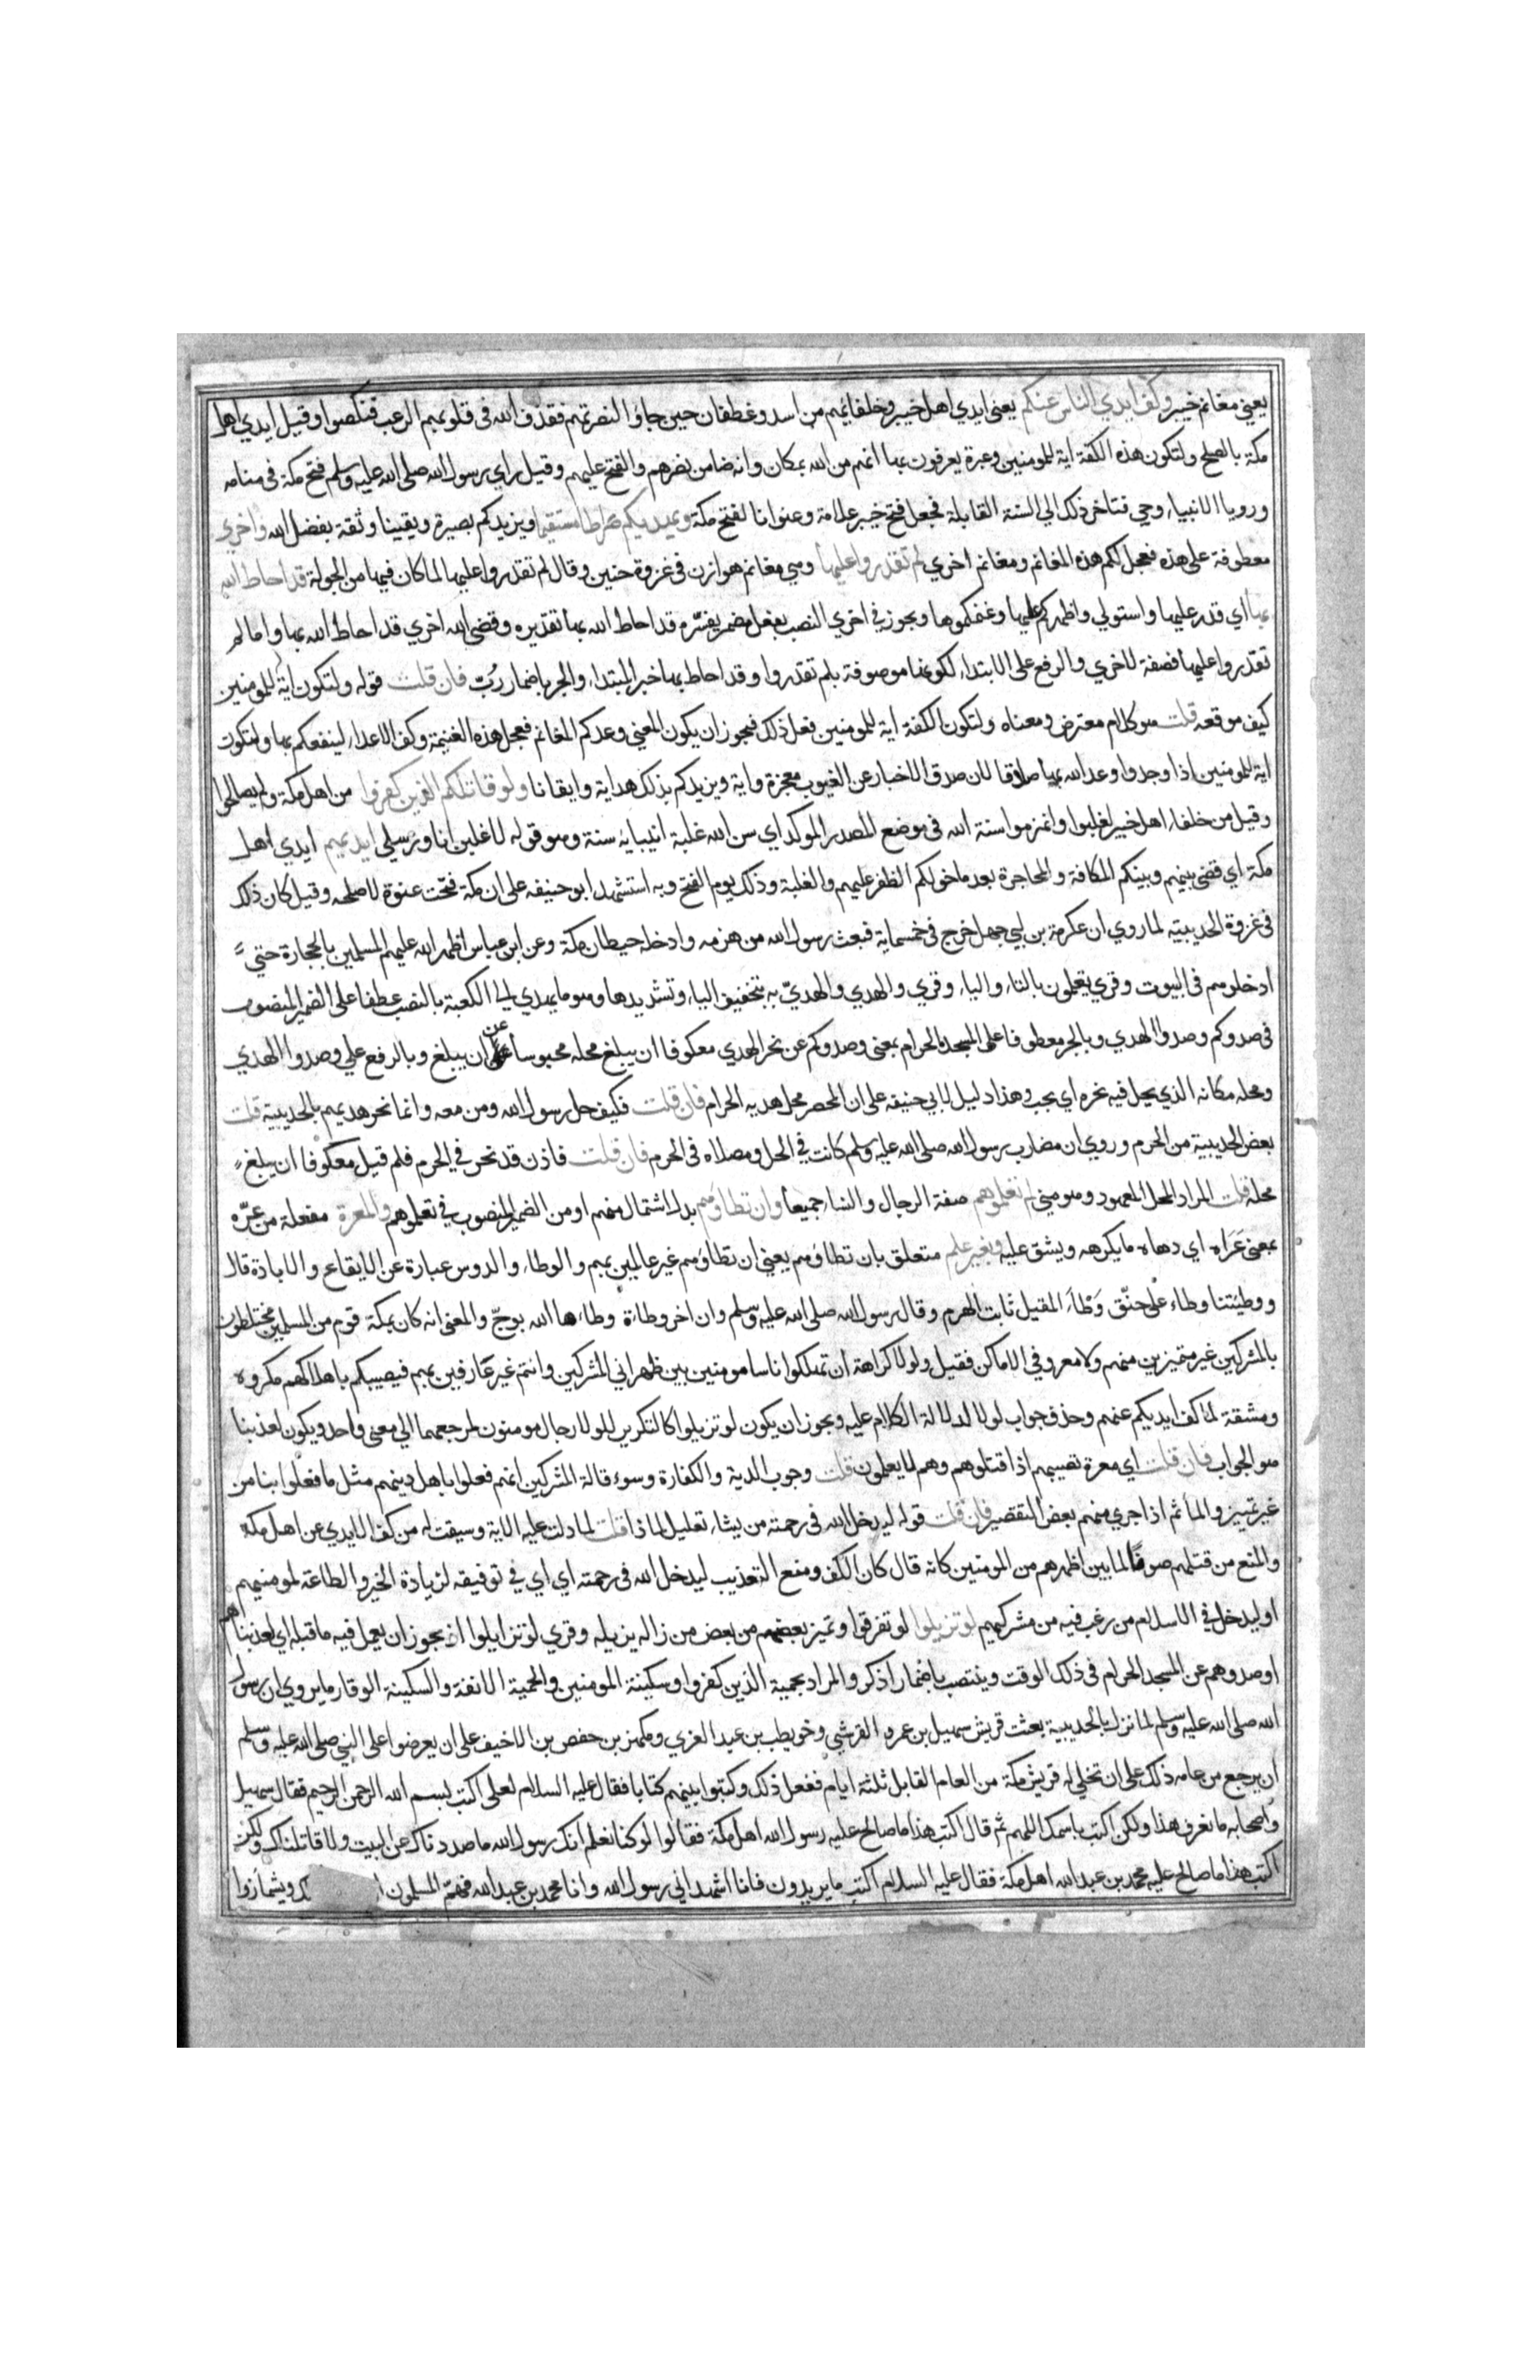 يعني مغانم خيبر وكف ايدي الناس عنكم يعني ايدي اهل خيبر وخلفايهم من اسد وغطفان حين جاؤا لنصرتهم فقذف الله في قلوبهم الرعب فنكصوا وقيل ايدي اهل
مكة بالصلح ولتكون هذه الكفة اية للمومنين وعبرة يعرفون بها انهم من الله بمكان وانه ضامن نصرهم والفتح عليهم وقيل راي رسول الله صلى الله عليه وسلم فتح مكة في منامه
ورويا الانبياء وحي فتاخر ذلك الي السنة القابلة فجعل فتح خيبر علامة وعنوانا لفتح مكة ويهديكم صراطا مستقيما ويزيدكم بصيرة ويقينا وثقة بفضل الله واخري
معطوفة على هذه فعجل لكم هذه المغانم ومغانم اخري لم تقدروا عليها وهي مغانم هوازن في غزوة حنين وقال لم تقدروا عليها لما كان فيها من الجولة قد احاط الله
بها اي قدر عليها واستولي واظهركم عليها وغنمكموها ويجوز في اخري النصب بفعل مضمر يفسره قد احاط الله بها تقديره وقضي الله اخري قد احاط الله بها واما لم
تقدروا عليها فصفة لاخري والرفع على الابتداء لكونها موصوفة بلم تقدروا وقد احاط بها خبر المبتداء والجر باضمار رب فان قلت قوله ولتكون اية للمومنين
كيف موقعه قلت هو كلام معترض ومعناه ولتكون الكفة اية للمومنين فعل ذلك فيجوز ان يكون المعني وعدكم المغانم فعجل هذه الغنيمة وكف الاعداء لينفعكم بها ولتكون
اية للمومنين اذا وجدوا وعد الله بها صادقا لان صدق الاخبار عن الغيوب معجزة واية ويزيدكم بذلك هداية وايقانا ولو قاتلكم الذين كفروا من اهل مكة ولم يصالحوا
وقيل من خلفاء اهل خيبر لغلبوا وانهزموا سنة الله في موضع المصدر الموكد اي سن الله غلبة انبيايه سنة وهو قوله لاغلبن انا ورسلي ايديهم ايدي اهل
مكة اي قضي بينهم وبينكم المكافة والمحاجزة بعد ما خولكم الظفر عليهم والغلبة وذلك يوم الفتح وبه استشهد ابو حنيفه على ان مكة فتحت عنوة لا صلحه وقيل كان ذلك
في غزوة الحديبية لما روي ان عكرمة بن ابي جهل خرج في خمسماية فبعث رسول الله من هزمه وادخله حيطان مكة وعن ابن عباس اظهر الله عليهم المسلمين بالحجارة حتي
ادخلوهم في البيوت وقري يعملون بالتاء والياء وقري والهدي والهديّ به بتخفيف الياء وتشديدها وهو ما يهدي الي الكعبة بالنصب عطفا على الضمير المنصوب
في صدوكم وصدوا الهدي وبالجر معطوفا على المسجد الحرام بمعني وصدوكم عن نحر الهدي معكوفا ان يبلغ محله محبوسا عن ان يبلغ وبالرفع علي وصدوا الهدي
ومحله مكانه الذي يحل فيه نحره اي يجب وهذا دليل لابي حنيفه على ان المحصر محل هديه الحرام فان قلت فكيف حل رسول الله ومن معه وانما نحر هديهم بالحديبية قلت
بعض الحديبية من الحرم وروي ان مضارب رسول الله صلى الله عليه وسلم كانت في الحل ومصلاه في الحرم فان قلت فاذن قد نحر في الحرم فلم قيل معكوفا ان يبلغ
محله قلت المراد المحل المعهود وهو مني لم تعلموهم صفة الرجال والنساء جميعا وان تطاوهم بدل اشتمال منهم او من الضمير المنصوب في تعلموهم والمعرة مفعلة من عرّه
بمعني عَرَاه اي دهاه ما يكرهه ويشق عليه وبغير علم متعلق بان تطاوهم يعني ان تطاوهم غير عالمين بهم والوطاء والدوس عبارة عن الايقاع والابادة قال
ووطيتنا وطاء على حنق وَطْاَ المقيل ثابت الهرم وقال رسول الله صلى الله عليه وسلم وان اخر وطاة وطاءها الله بوجّ والمعني انه كان بمكة قوم من المسلمين مختلطون
بالمشركين غير متميزين منهم ولا معروفي الاماكن فقيل ولولا كراهة ان تهلكوا ناسا مومنين بين ظهراني المشركين وانتم غير عارفين بهم فيصيبكم باهلاكهم مكروه
ومشقة لما كف ايديكم عنهم وحذف جواب لولا لدلالة الكلام عليه ويجوز ان يكون لو تزيلوا كالتكرير للولا رجال مومنون لمرجعهما الي معني واحد ويكون لعذبنا
هو الجواب فان قلت اي معرة تصيبهم اذا قتلوهم وهم لا يعلمون قلت وجوب الدية والكفارة وسوء قالة المشركين انهم فعلوا باهل دينهم مثل ما فعلوا بنا من
غير تمييز والمأثم اذا جري منهم بعض التقصير فان قلت قوله ليدخل الله في رحمته من يشاء تعليل لماذا قلت لما دلت عليه الاية وسيقت له من كف الايدي عن اهل مكة
والمنع من قتلهم صوفا لما بين اظهرهم من المومنين كانه قال كان الكف ومنع التعذيب ليدخل الله في رحمته اي اي في توفيقه لزيادة الخير والطاعة لمومنيهم
او ليدخل في الاسلام من رغب فيه من مشركيهم لو تزيلوا لو تفرقوا وتميز بعضهم من بعض من زاله يزيله وقري لو تزايلوا اذ يجوز ان يعمل فيه ما قبله اي لعذبناهم
او صدوهم عن المسجد الحرام في ذلك الوقت وينتصب باضمار اذكر والمراد بحمية الذين كفروا وسكينة المومنين والحمية الانفة والسكينة الوقار ما روي ان رسول
الله صلى الله عليه وسلم لما نزل بالحديبية بعثت قريش سهيل بن عمرو القرشي وخويطب بن عبد العزي ومكرز بن حفص بن الاخيف على ان يعرضوا على النبي صلى الله عليه وسلم
ان يرجع من عامه ذلك على ان تخلي له قريش مكة من العام القابل ثلثة ايام ففعل ذلك وكتبوا بينهم كتابا فقال عليه السلام لعلي اكتب بسم الله الرحمن الرحيم فقال سهيل
واصحابه ما نعرف هذا ولكن اكتب باسمك اللهم ثم قال اكتب هذا ما صالح عليه رسول الله اهل مكة فقالوا لو كنا نعلم انك رسول الله ما صددناك عن البيت ولا قاتلناك ولكن
اكتب هذا ما صالح عليه محمد بن عبد الله اهل مكة فقال عليه السلام اكتب ما يريدون فانا اشهد اني رسول الله وانا محمد بن عبد الله فهم المسلمون ويشمأزوا